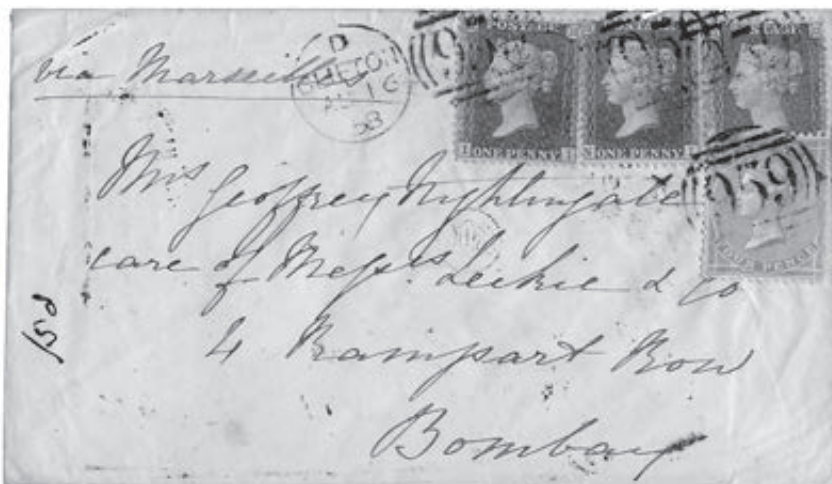 via Marseilles
D
JU 16
58
ONE PENNY
ONE PENNY
959
FOUR PENCE
Mrs Geoffrey Nightingale
care of Mess.rs Leckie & Co
4 Rampart Row
Bombay